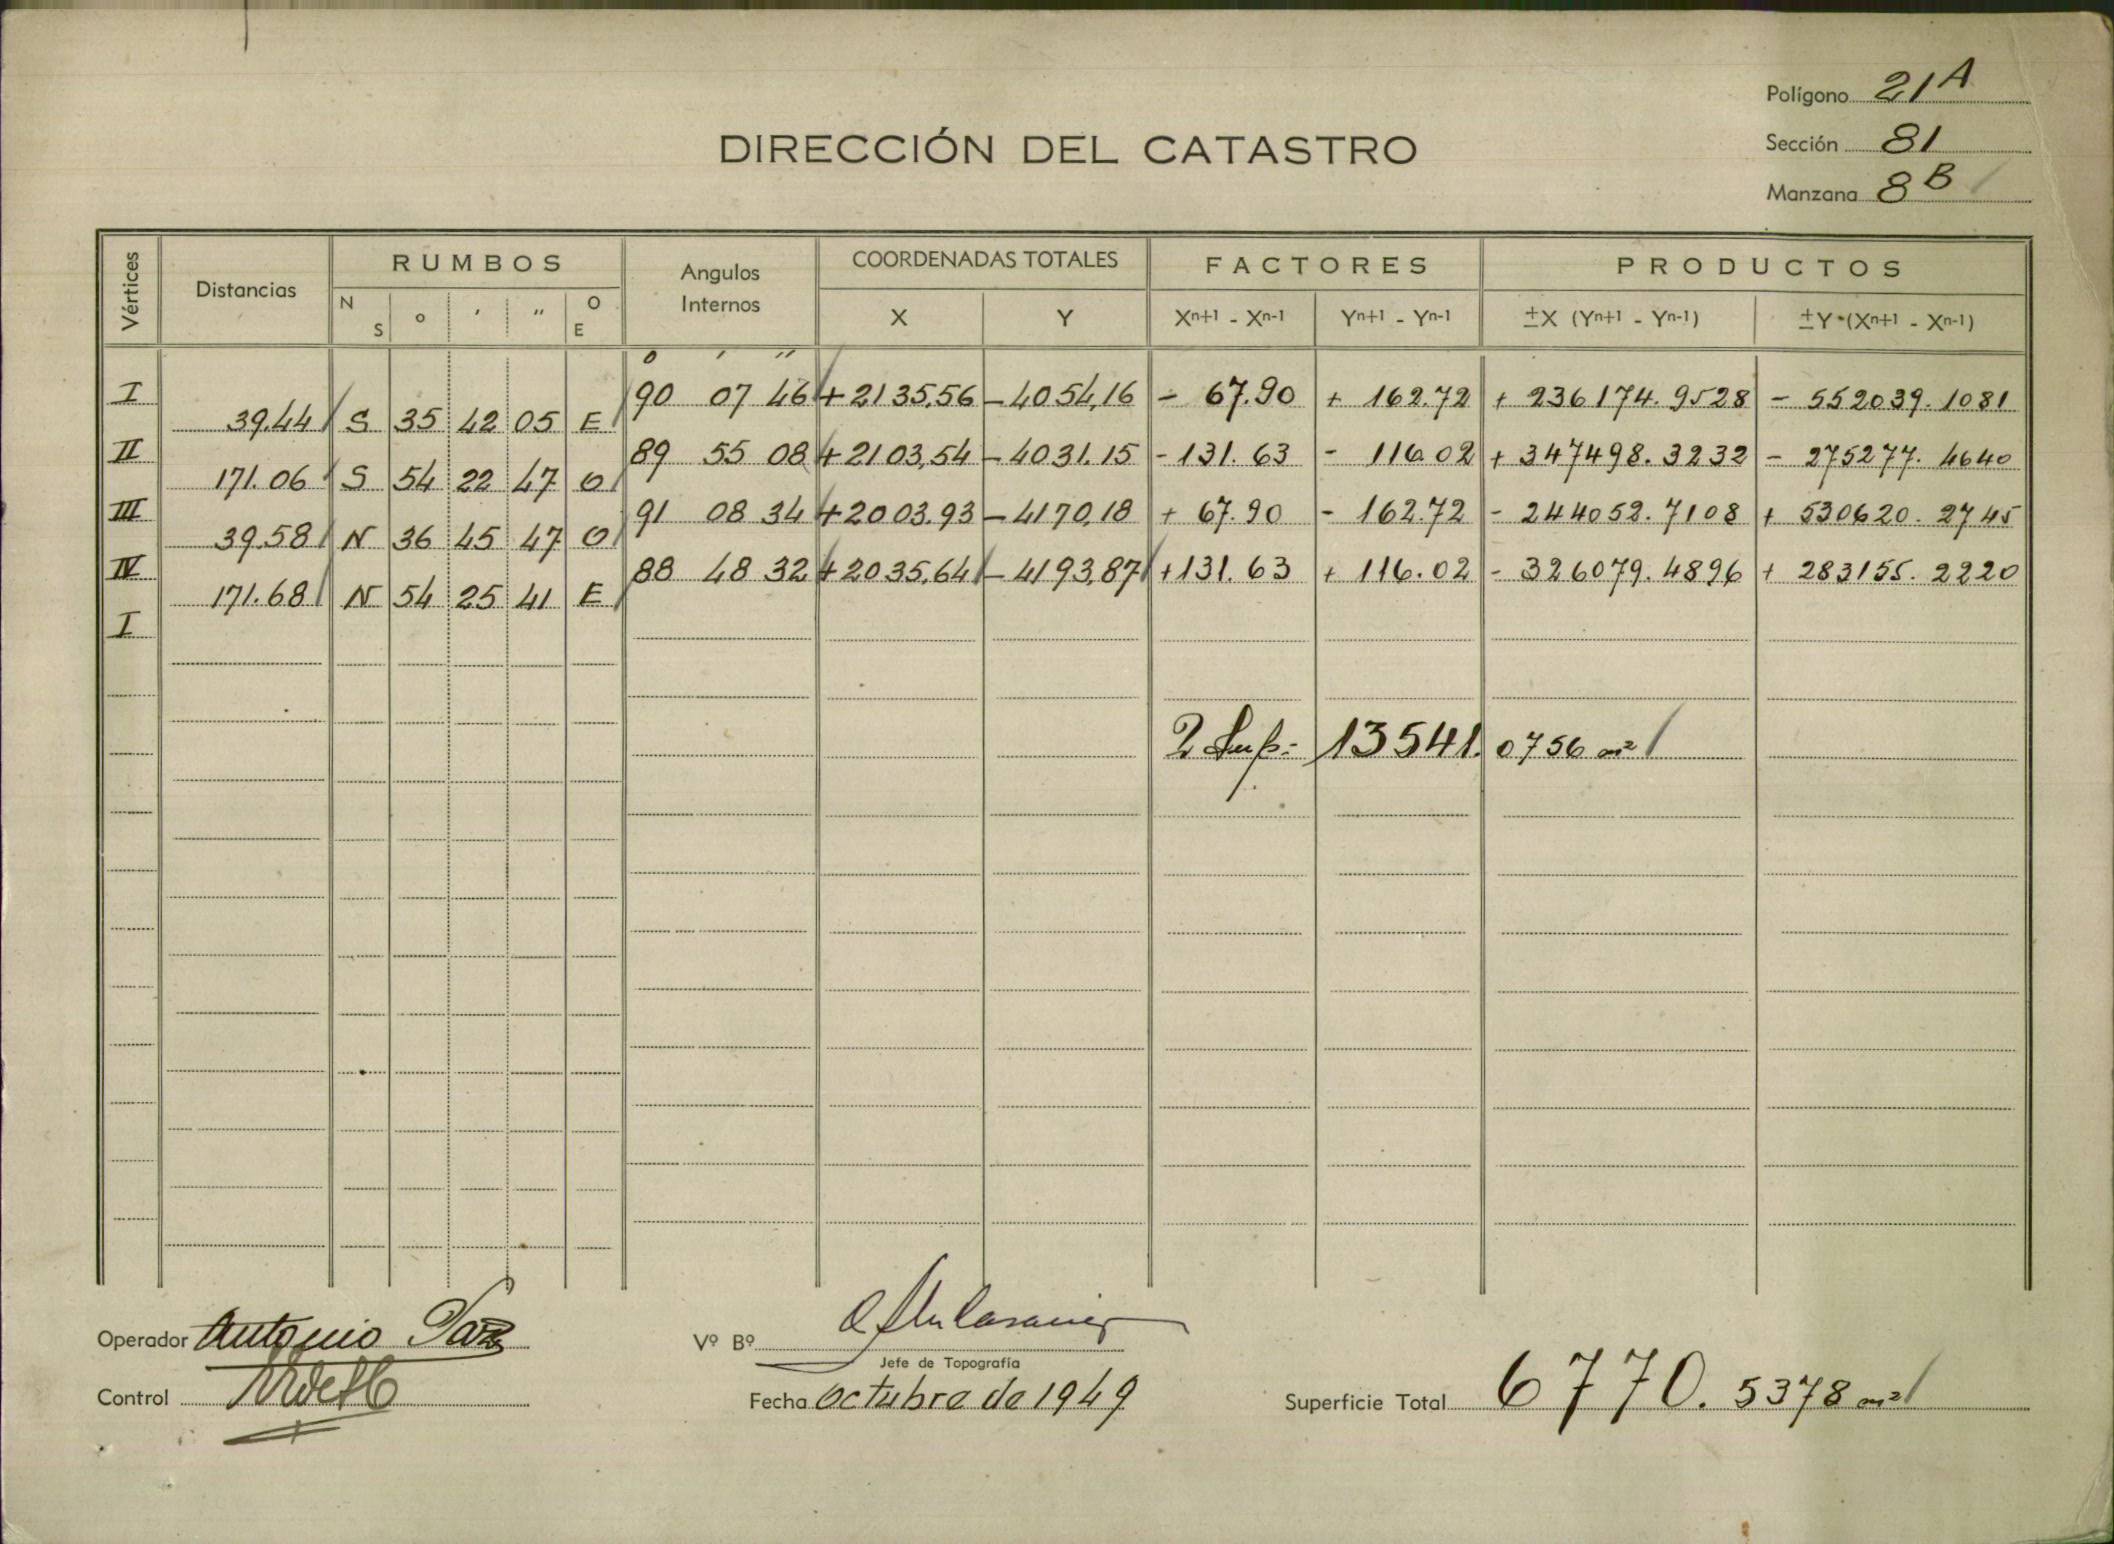 Polígono 21A
DIRECCIÓN DEL CATASTRO
Sección 81
Manzana 8B
Vértices Distancias RUMBOS Angulos Internos COORDENADAS TOTALES FACTORES PRODUCTOS
N S ° ' " O E X Y Xn+1 - Xn-1 Yn+1 - Yn-1 ±X (Yn+1 - Yn-1) ±Y (Xn+1 - Xn-1)
° ' "
I 90 07 46 +2135,56 -4054,16 - 67.90 + 162.72 + 236174.9528 - 552039.1081
39.44 S 35 42 05 E
II 89 55 08 +2103,54 -4031.15 -131.63 - 116.02 + 347498.3232 - 275277.4640
171.06 S 54 22 47 O
III 91 08 34 +2003.93 -4170,18 + 67.90 - 162.72 - 244052.7108 + 530620.2745
39.58 N 36 45 47 O
IV 88 48 32 +2035,64 -4193,87 +131.63 + 116.02 - 326079.4896 + 283155.2220
171.68 N 54 25 41 E
I
2 Sup= 13541.0756 m²
Operador Antonio Paz
Vº Bº
Jefe de Topografía
Control
Fecha Octubre de 1949
Superficie Total 6770.5378 m²